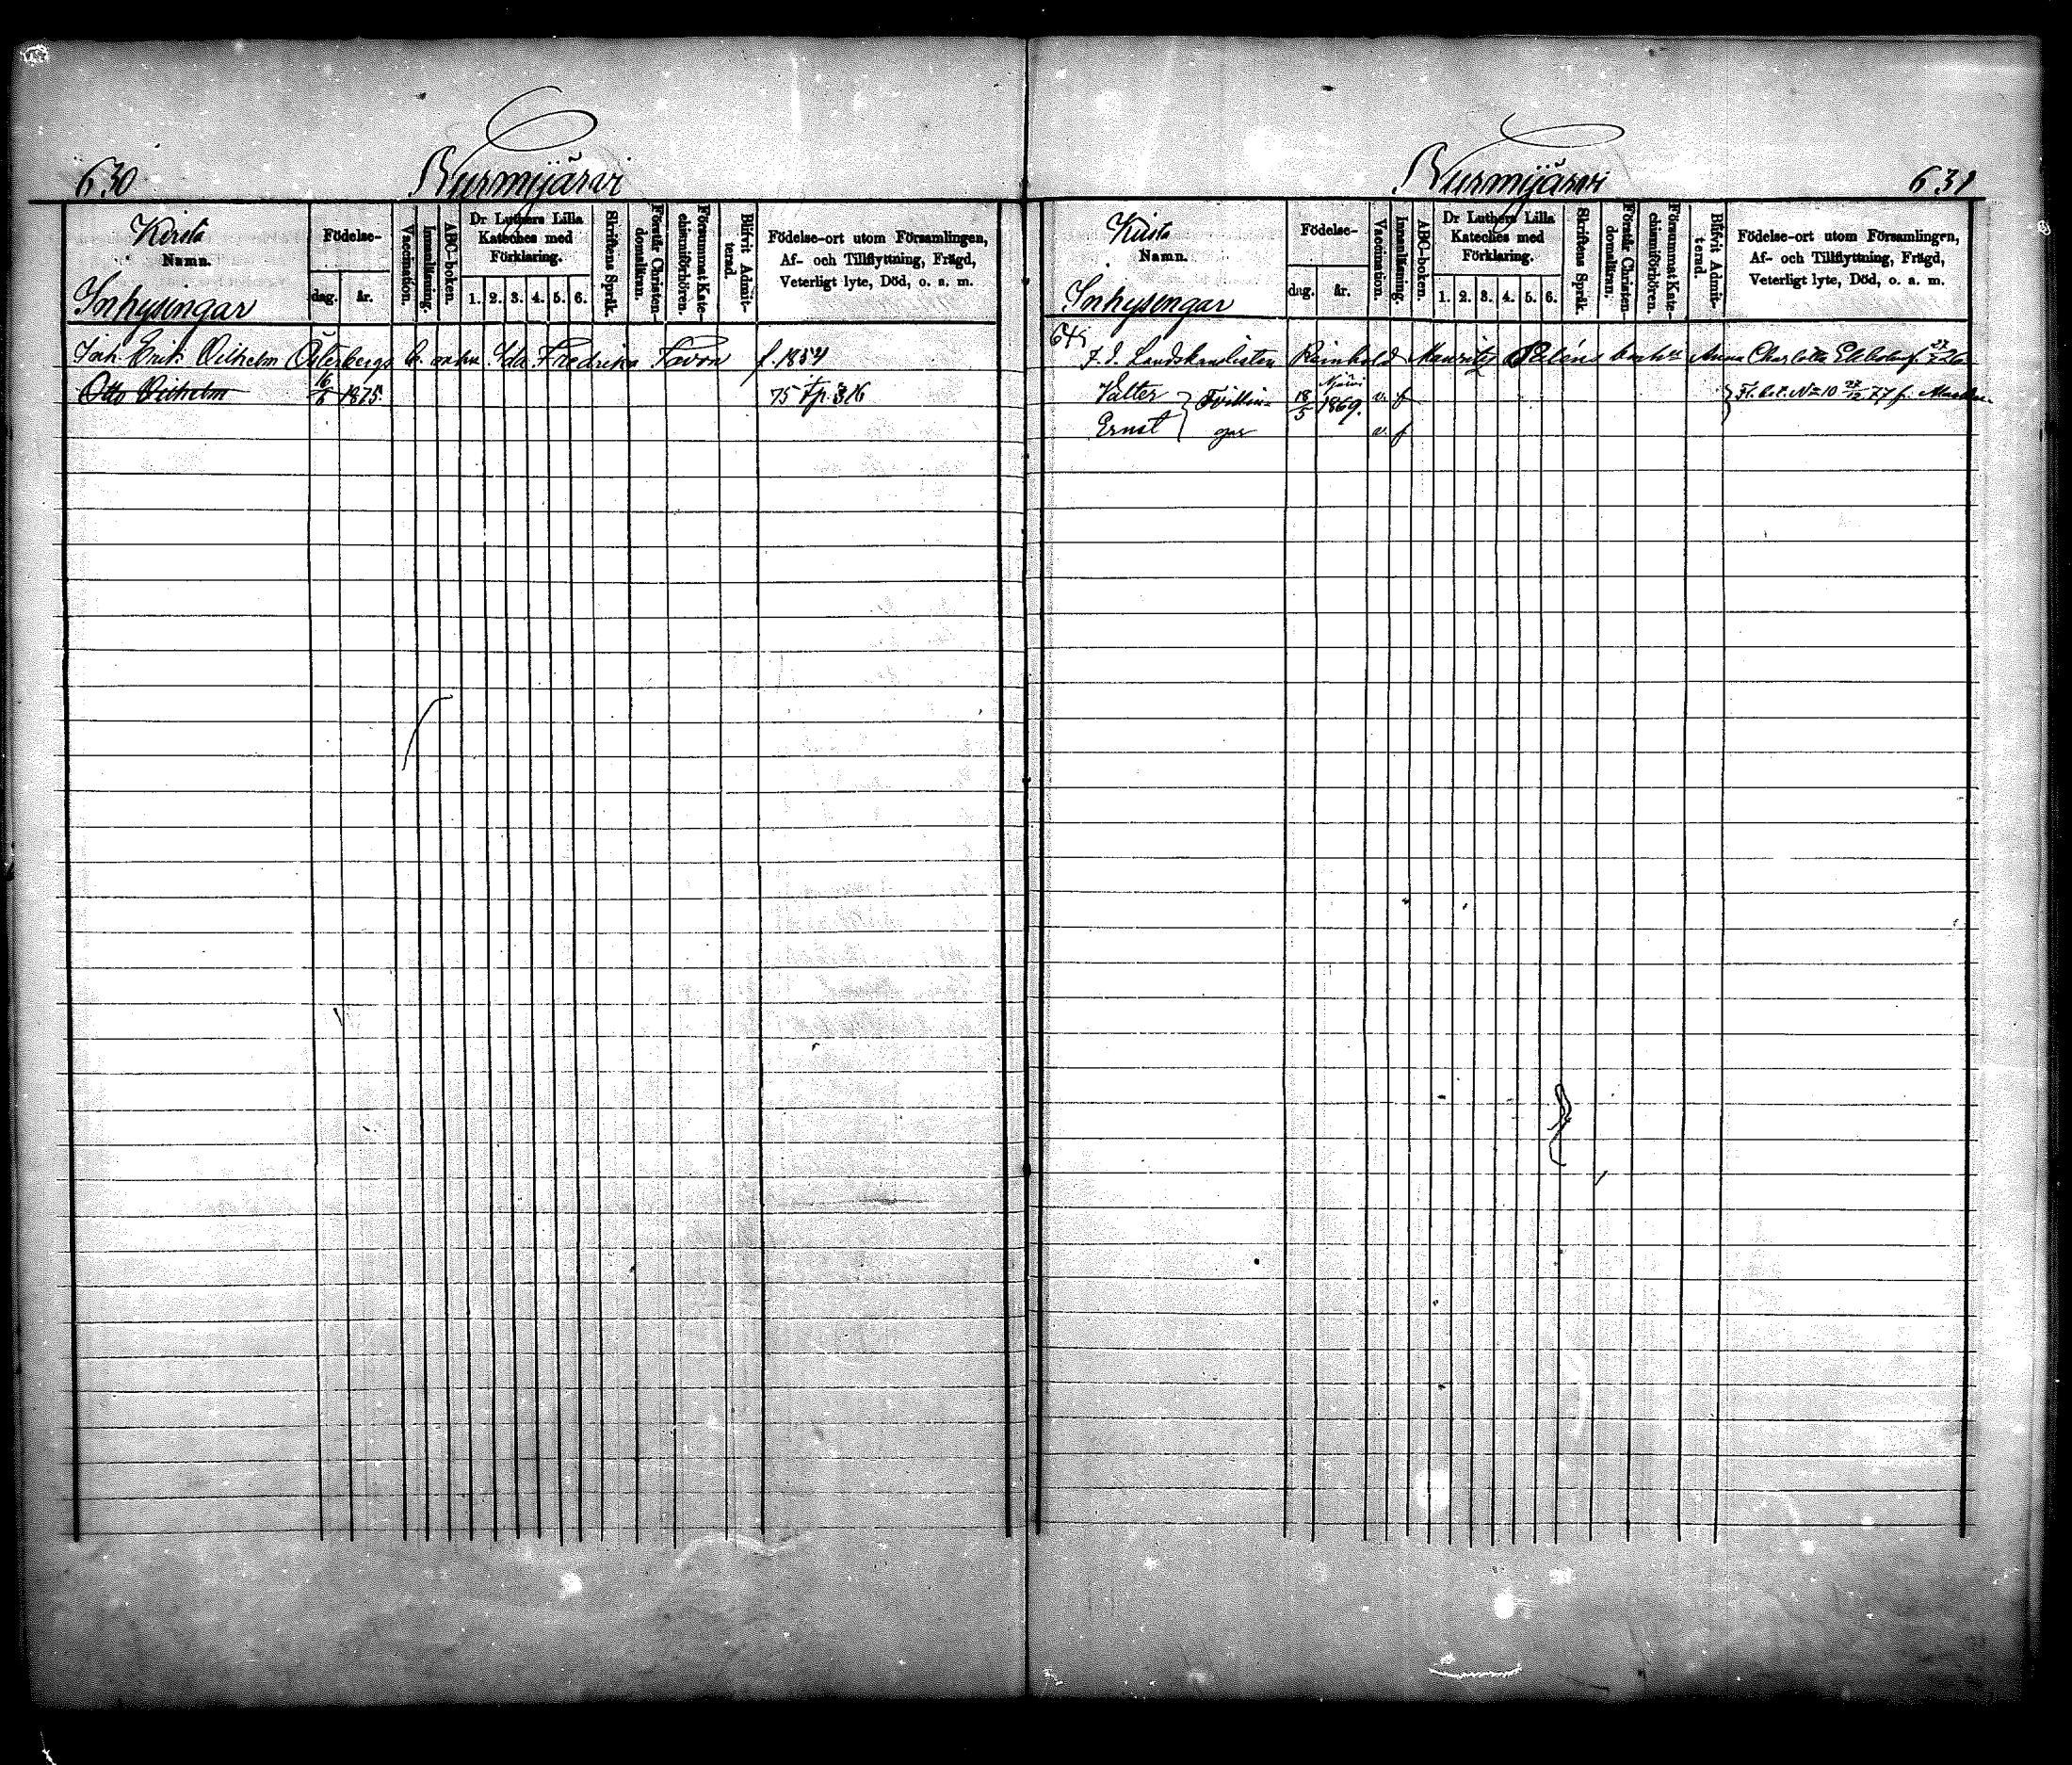 630
Nurmijärvi
Kirsta
Namn.
Inhysingar
Födelse-
dag.
år.
Vaccination.
Innanläsning.
ABC-boken.
Dr Luthers Lilla
Kateches med
Förklaring.
1. 2. 3. 4. 5. 6.
Skriftens Språk.
Förstår Christen-
domsläran.
Försummat Kate-
chismiförhören.
Blifvit Admit-
terad.
Födelse-ort utom Församlingen,
Af- och Tillflyttning, Frägd,
Veterligt lyte, Död, o. a. m.
Joh. Erik Wilhelm Österbergs Ida Fredrika f. 1854
Otto Wilhelm 16/6 1875 75 fp. 316
Nurmijärvi
631
Kirsta
Namn.
Inhysingar
Födelse-
dag.
år.
Vaccination.
Innanläsning.
ABC-boken.
Dr Luthers Lilla
Kateches med
Förklaring.
1. 2. 3. 4. 5. 6.
Skriftens Språk.
Förstår Christen-
domsläran.
Försummat Kate-
chismiförhören.
Blifvit Admit-
terad.
Födelse-ort utom Församlingen,
Af- och Tillflyttning, Frägd,
Veterligt lyte, Död, o. a. m.
F. d. Landskanslisten Reinhold Mauritz Anna Charlotta
Valter } Tvillin- 18/5 1869. v. f } Fl. bet. No 10 27/12 77 fr.
Ernst } gar v. f